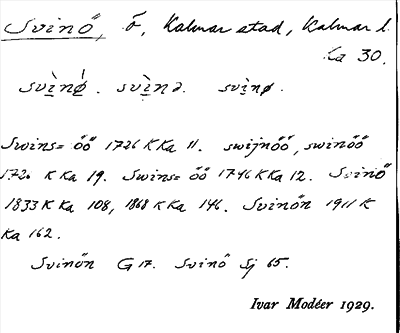 Svinö, ö, Kalmar stad, Kalmar l.
Ka 30.
svìnǿ. svìnə. svinø.
Swins= öö 1726 K Ka 11. swijnöö, swinöö
1720 K Ka 19. Swins= öö 1746 K Ka 12. Svinö
1833 K Ka 108, 1868 K Ka 146. Svinön 1911 K
Ka 162.
Svinön G 17. Svinö Sj 65.
Ivar Modéer 1929.